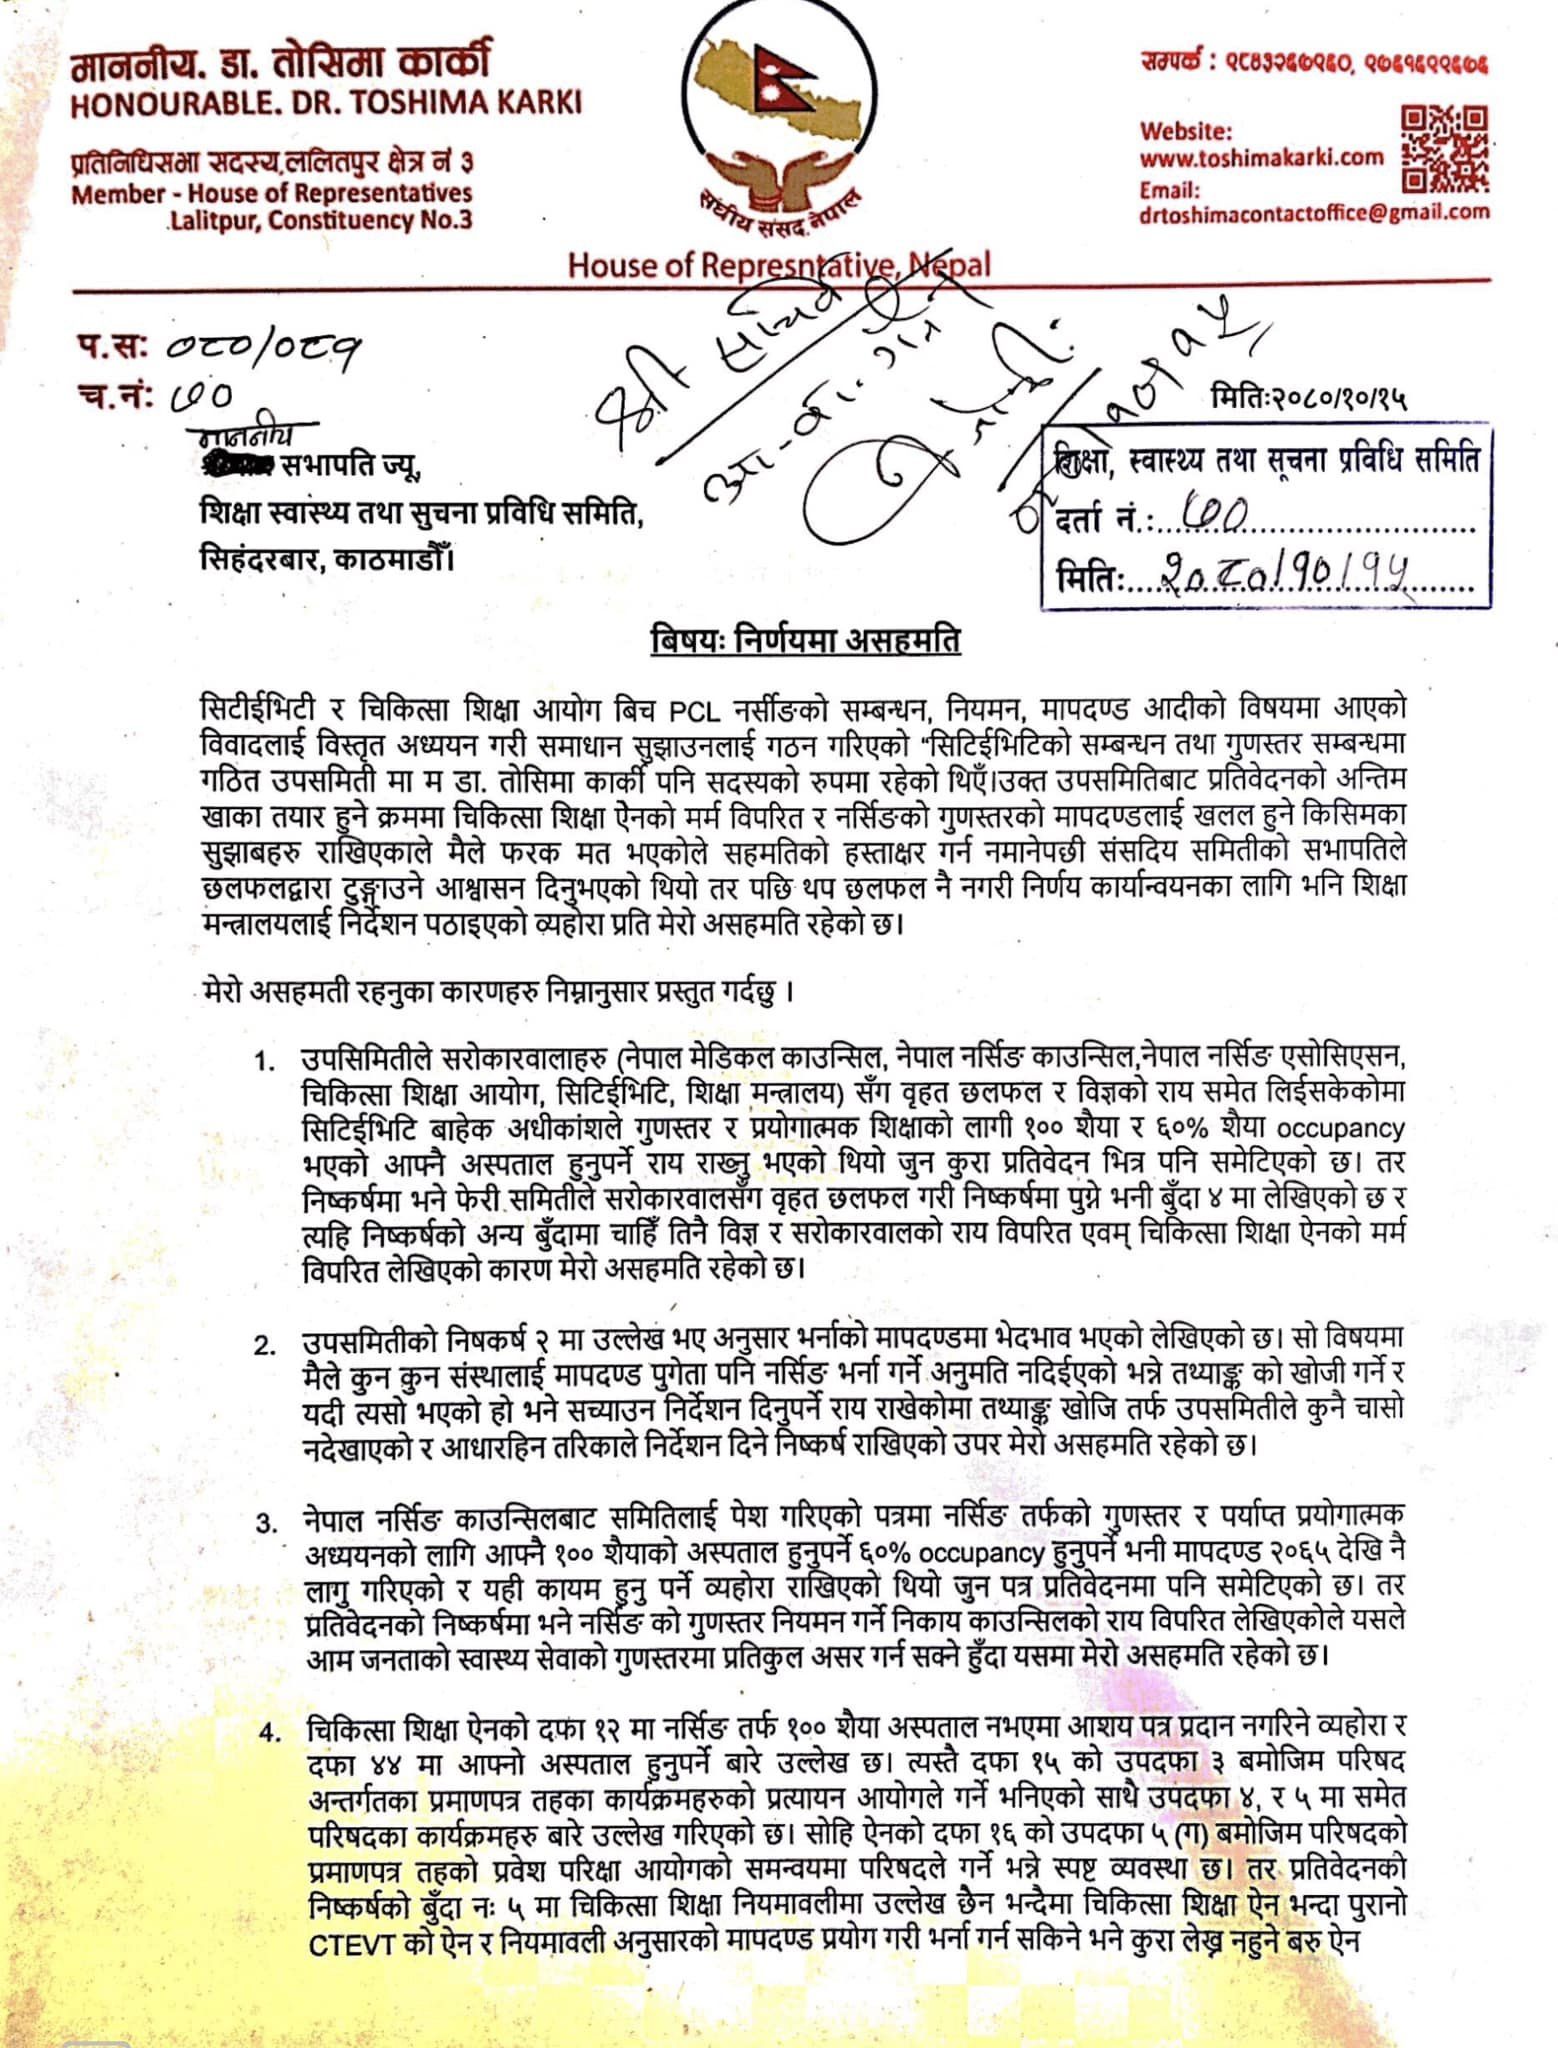 माननीय. डा. तोसिमा कार्की
HONOURABLE. DR. TOSHIMA KARKI
प्रतिनिधिसभा सदस्य,ललितपुर क्षेत्र नं ३
Member - House of Representatives
Lalitpur, Constituency No.3
संघीय संसद, नेपाल
House of Represntative, Nepal
सम्पर्क : ९८४३२६७९६०, ९७६१६९९६७६
Website:
www.toshimakarki.com
Email:
drtoshimacontactoffice@gmail.com
प.स: ०८०/०८१
च.नं: ७०
श्री सचिव
मितिः२०८०/१०/१५
माननीय
सभापति ज्यू,
शिक्षा स्वास्थ्य तथा सुचना प्रविधि समिति,
सिहंदरबार, काठमाडौँ।
शिक्षा, स्वास्थ्य तथा सूचना प्रविधि समिति
दर्ता नं.: ७०
मितिः २०८०/१०/१५
बिषयः निर्णयमा असहमति
सिटीईभिटी र चिकित्सा शिक्षा आयोग बिच PCL नर्सीङको सम्बन्धन, नियमन, मापदण्ड आदीको विषयमा आएको
विवादलाई विस्तृत अध्ययन गरी समाधान सुझाउनलाई गठन गरिएको "सिटिईभिटिको सम्बन्धन तथा गुणस्तर सम्बन्धमा
गठित उपसमिती मा म डा. तोसिमा कार्की पनि सदस्यको रुपमा रहेको थिएँ।उक्त उपसमितिबाट प्रतिवेदनको अन्तिम
खाका तयार हुने क्रममा चिकित्सा शिक्षा ऐेनको मर्म विपरित र नर्सिङको गुणस्तरको मापदण्डलाई खलल हुने किसिमका
सुझाबहरु राखिएकाले मैले फरक मत भएकोले सहमतिको हस्ताक्षर गर्न नमानेपछी संसदिय समितीको सभापतिले
छलफलद्वारा टुङ्गाउने आश्वासन दिनुभएको थियो तर पछि थप छलफल नै नगरी निर्णय कार्यान्वयनका लागि भनि शिक्षा
मन्त्रालयलाई निर्देशन पठाइएको व्यहोरा प्रति मेरो असहमति रहेको छ।
मेरो असहमती रहनुका कारणहरु निम्नानुसार प्रस्तुत गर्दछु ।
1. उपसिमितीले सरोकारवालाहरु (नेपाल मेडिकल काउन्सिल, नेपाल नर्सिङ काउन्सिल,नेपाल नर्सिङ एसोसिएसन,
चिकित्सा शिक्षा आयोग, सिटिईभिटि, शिक्षा मन्त्रालय) सँग वृहत छलफल र विज्ञको राय समेत लिईसकेकोमा
सिटिईभिटि बाहेक अधीकांशले गुणस्तर र प्रयोगात्मक शिक्षाको लागी १०० शैया र ६०% शैया occupancy
भएको आफ्नै अस्पताल हुनुपर्ने राय राख्नु भएको थियो जुन कुरा प्रतिवेदन भित्र पनि समेटिएको छ। तर
निष्कर्षमा भने फेरी समितीले सरोकारवालसँग वृहत छलफल गरी निष्कर्षमा पुग्ने भनी बुँदा ४ मा लेखिएको छ र
त्यहि निष्कर्षको अन्य बुँदामा चाहिँ तिनै विज्ञ र सरोकारवालको राय विपरित एवम् चिकित्सा शिक्षा ऐनको मर्म
विपरित लेखिएको कारण मेरो असहमति रहेको छ।
2. उपसमितीको निषकर्ष २ मा उल्लेख भए अनुसार भर्नाको मापदण्डमा भेदभाव भएको लेखिएको छ। सो विषयमा
मैले कुन कुन संस्थालाई मापदण्ड पुगेता पनि नर्सिङ भर्ना गर्ने अनुमति नदिईएको भन्ने तथ्याङ्क को खोजी गर्ने र
यदी त्यसो भएको हो भने सच्याउन निर्देशन दिनुपर्ने राय राखेकोमा तथ्याङ्क खोजि तर्फ उपसमितीले कुनै चासो
नदेखाएको र आधारहिन तरिकाले निर्देशन दिने निष्कर्ष राखिएको उपर मेरो असहमति रहेको छ।
3. नेपाल नर्सिङ काउन्सिलबाट समितिलाई पेश गरिएको पत्रमा नर्सिङ तर्फको गुणस्तर र पर्याप्त प्रयोगात्मक
अध्ययनको लागि आफ्नै १०० शैयाको अस्पताल हुनुपर्ने ६०% occupancy हुनुपर्ने भनी मापदण्ड २०६५ देखि नै
लागु गरिएको र यही कायम हुनु पर्ने व्यहोरा राखिएको थियो जुन पत्र प्रतिवेदनमा पनि समेटिएको छ। तर
प्रतिवेदनको निष्कर्षमा भने नर्सिङ को गुणस्तर नियमन गर्ने निकाय काउन्सिलको राय विपरित लेखिएकोले यसले
आम जनताको स्वास्थ्य सेवाको गुणस्तरमा प्रतिकुल असर गर्न सक्ने हुँदा यसमा मेरो असहमति रहेको छ।
4. चिकित्सा शिक्षा ऐनको दफा १२ मा नर्सिङ तर्फ १०० शैया अस्पताल नभएमा आशय पत्र प्रदान नगरिने व्यहोरा र
दफा ४४ मा आफ्नो अस्पताल हुनुपर्ने बारे उल्लेख छ। त्यस्तै दफा १५ को उपदफा ३ बमोजिम परिषद
अन्तर्गतका प्रमाणपत्र तहका कार्यक्रमहरुको प्रत्यायन आयोगले गर्ने भनिएको साथै उपदफा ४, र ५ मा समेत
परिषदका कार्यक्रमहरु बारे उल्लेख गरिएको छ। सोहि ऐनको दफा १६ को उपदफा ५ (ग) बमोजिम परिषदको
प्रमाणपत्र तहको प्रवेश परिक्षा आयोगको समन्वयमा परिषदले गर्ने भन्ने स्पष्ट व्यवस्था छ। तर प्रतिवेदनको
निष्कर्षको बुँदा नः ५ मा चिकित्सा शिक्षा नियमावलीमा उल्लेख छैन भन्दैमा चिकित्सा शिक्षा ऐन भन्दा पुरानो
CTEVT को ऐन र नियमावली अनुसारको मापदण्ड प्रयोग गरी भर्ना गर्न सकिने भने कुरा लेख्न नहुने बरु ऐन